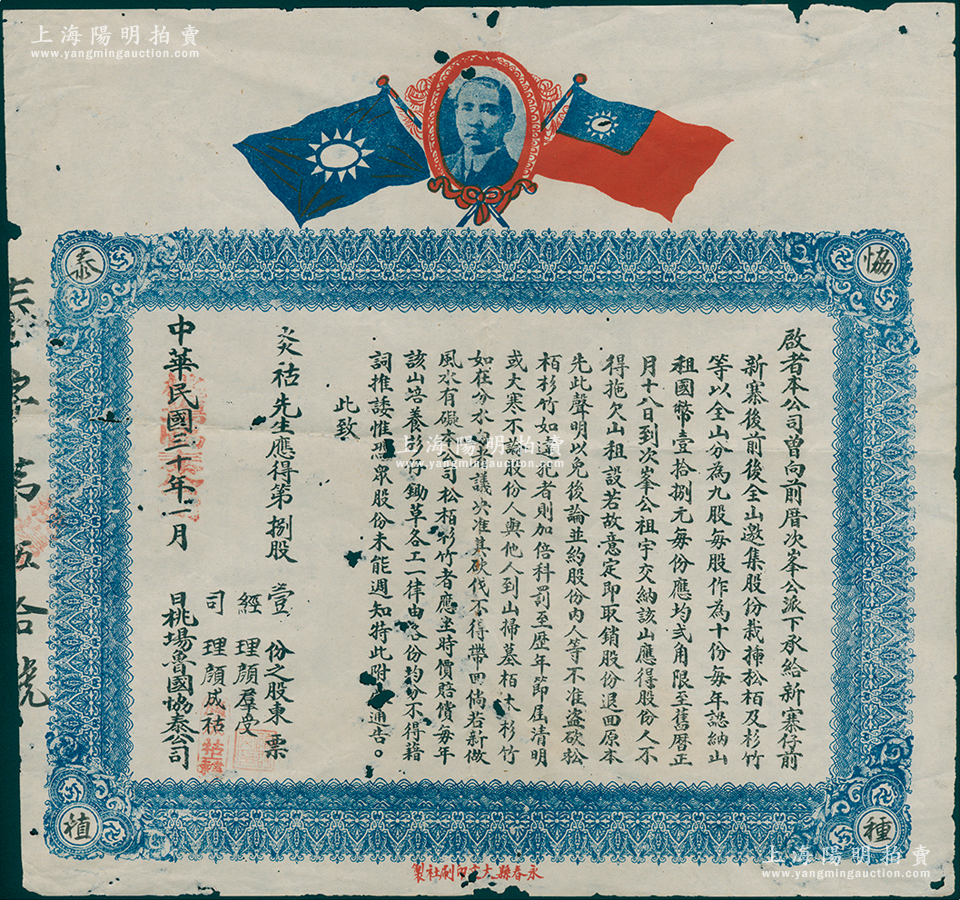 上海陽明拍賣
www.yangmingauction.com
協泰種植
啟者本公司曾向前厝次峯公派下承給新寨仔前
新寨後前後全山邀集股份栽揷松栢及杉竹
等以全山分為九股每股作為十份每年認納山
租國幣壹拾捌元每份應均弍角限至舊曆正
月十八日到次峯公祖宇交納該山應得股份人不
得拖欠山租設若故意定即取銷股份退回原本
先此聲明以免後論並約股份內人等不准盜砍松
栢杉竹如違者則加倍科罰至歷年節屆清明
或大寒不論股份人與他人到山掃墓栢木杉竹
如在分水 議決准其砍伐不得帶回倘若新做
風水有礙本公司松栢杉竹者應主時價賠償每年
該山培養杉仔鋤草各工一律由各份均分不得藉
詞推諉惟恐衆股份未能週知特此附 通告。
此致
炎祜先生應得第捌股 壹 份之股東 票
經理顏羣受
司理顏成祜
中華民國三十年一月 日桃場魯國協泰公司
泰字第伍拾號
上海陽明拍賣
www.yangmingauction.com
永春縣大 印刷社製
上海陽明拍賣
www.yangmingauction.com